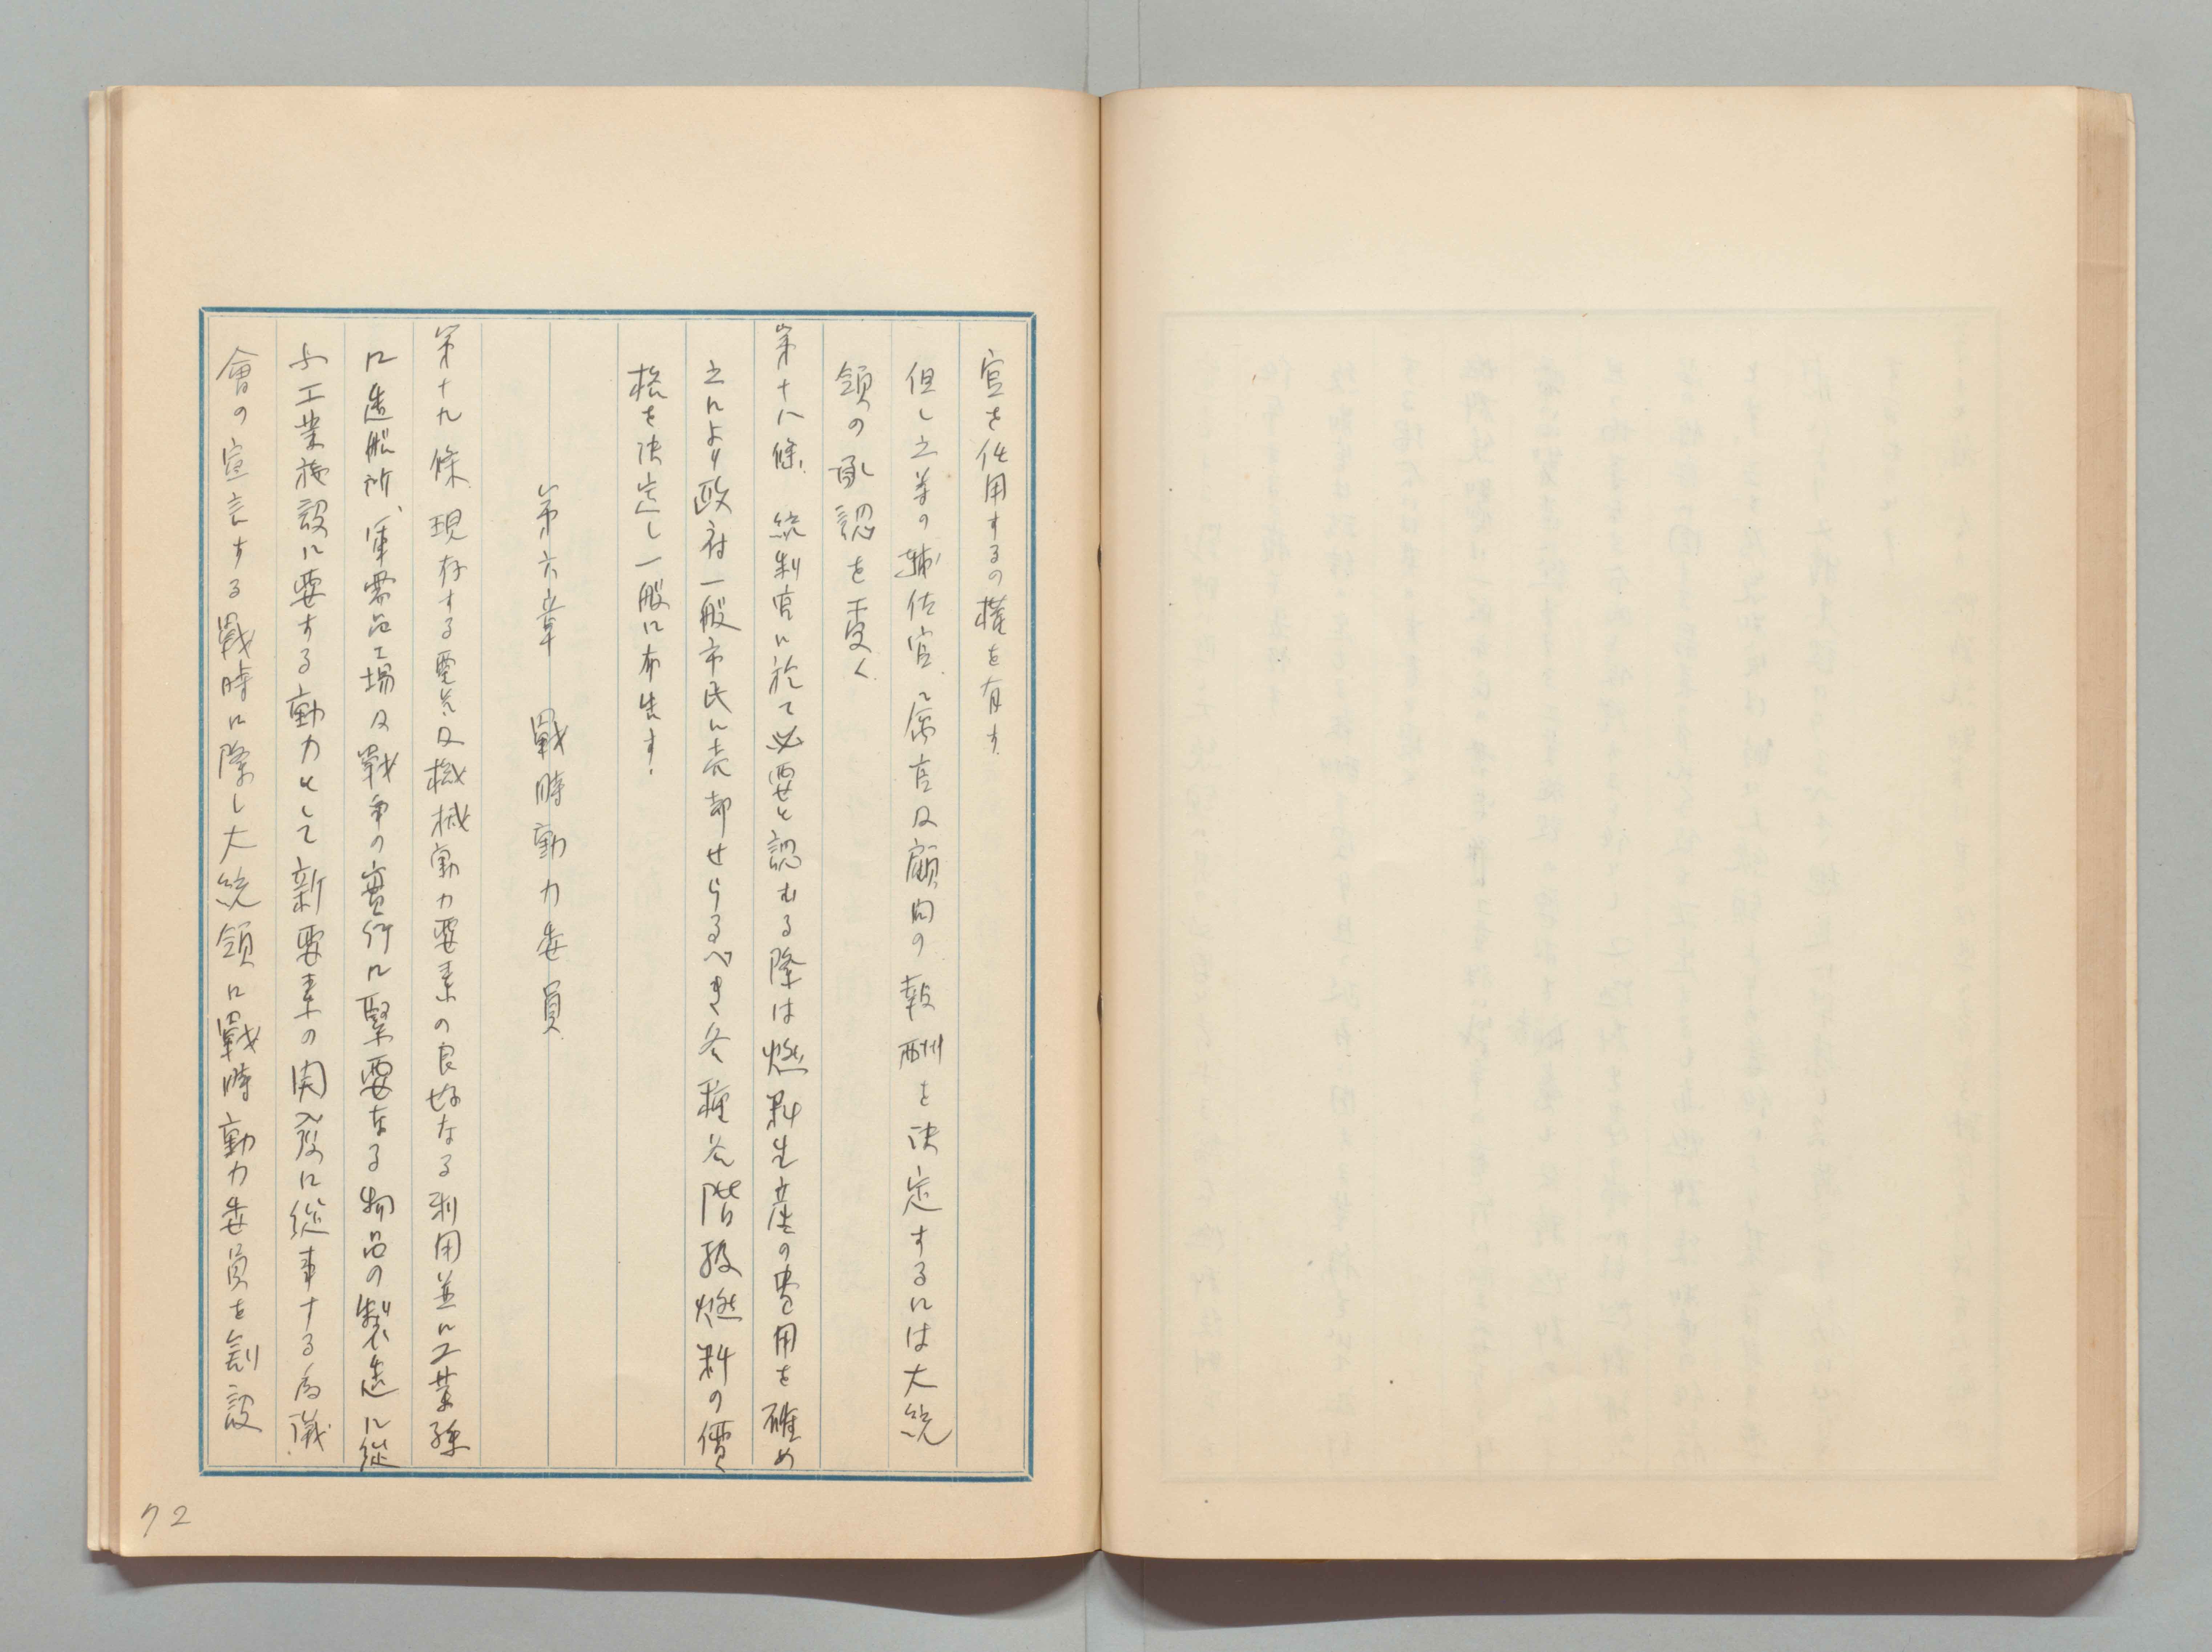 官を任用するの権を有す
但し之等の補佐官、属官及顧問の報酬を決定するには大統
領の承認を要く
第十八條、統制官に於て必要と認むる際は燃料生産の費用を確め
之により政府一般市民に売却せらるべき各種各階級燃料の價
格を決定し一般に布告す
第六章 戰時動力委員
第十九條 現存する電気及機械動力要素の良好なる利用並に工業殊
に造船所、軍需品工場及戰争の實行に緊要なる物品の製造に従
ふ工業施設に要する動力として新要素の開發に從事する為議
會の宣言する戰時に際し大統領に戰時動力委員を創設
72